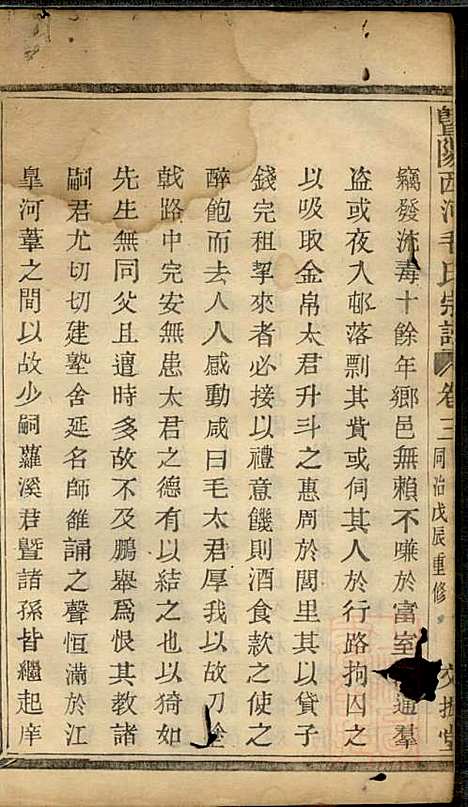 暨陽西河毛氏宗譜 卷三 同治戊辰重修
竊發流毒十餘年鄉邑無賴不嗛於富室 通羣
盗或夜入邨落剽其貲或伺其人於行路拘囚之
以吸取金帛太君升斗之惠周於閭里其以貸子
錢完租挈來者必接以禮意饑則酒食款之使之
醉飽而去人人感動咸曰毛太君厚我以故刀
戟路中完安無患太君之德有以結之也以猗如
先生無同父且遭時多故不及鵬舉爲恨其教諸
嗣君尤切切建塾舍延名師雒誦之聲恒滿於江
臯河葦之間以故少嗣蘿溪君暨諸孫皆繼起庠